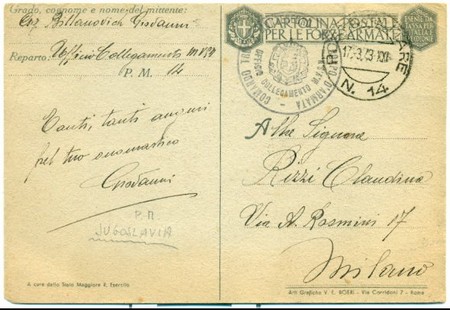 Grado, cognome e nome del mittente:
Giovanni
Reparto: Ufficio Collegamento
P. M. 14
Tanti, tanti auguri
pel tuo onomastico
Giovanni
P. M.
JUGOSLAVIA
A cura dello Stato Maggiore R. Esercito
CARTOLINA POSTALE
PER LE FORZE ARMATE
UFFICIO COLLEGAMENTO
COMANDO
D'ARMATA
N. 14
Alla Signora
Rizzi Claudina
Via A. Rosmini 17
Milano
Arti Grafiche V. E. BOERI - Via Corridoni 7 - Roma